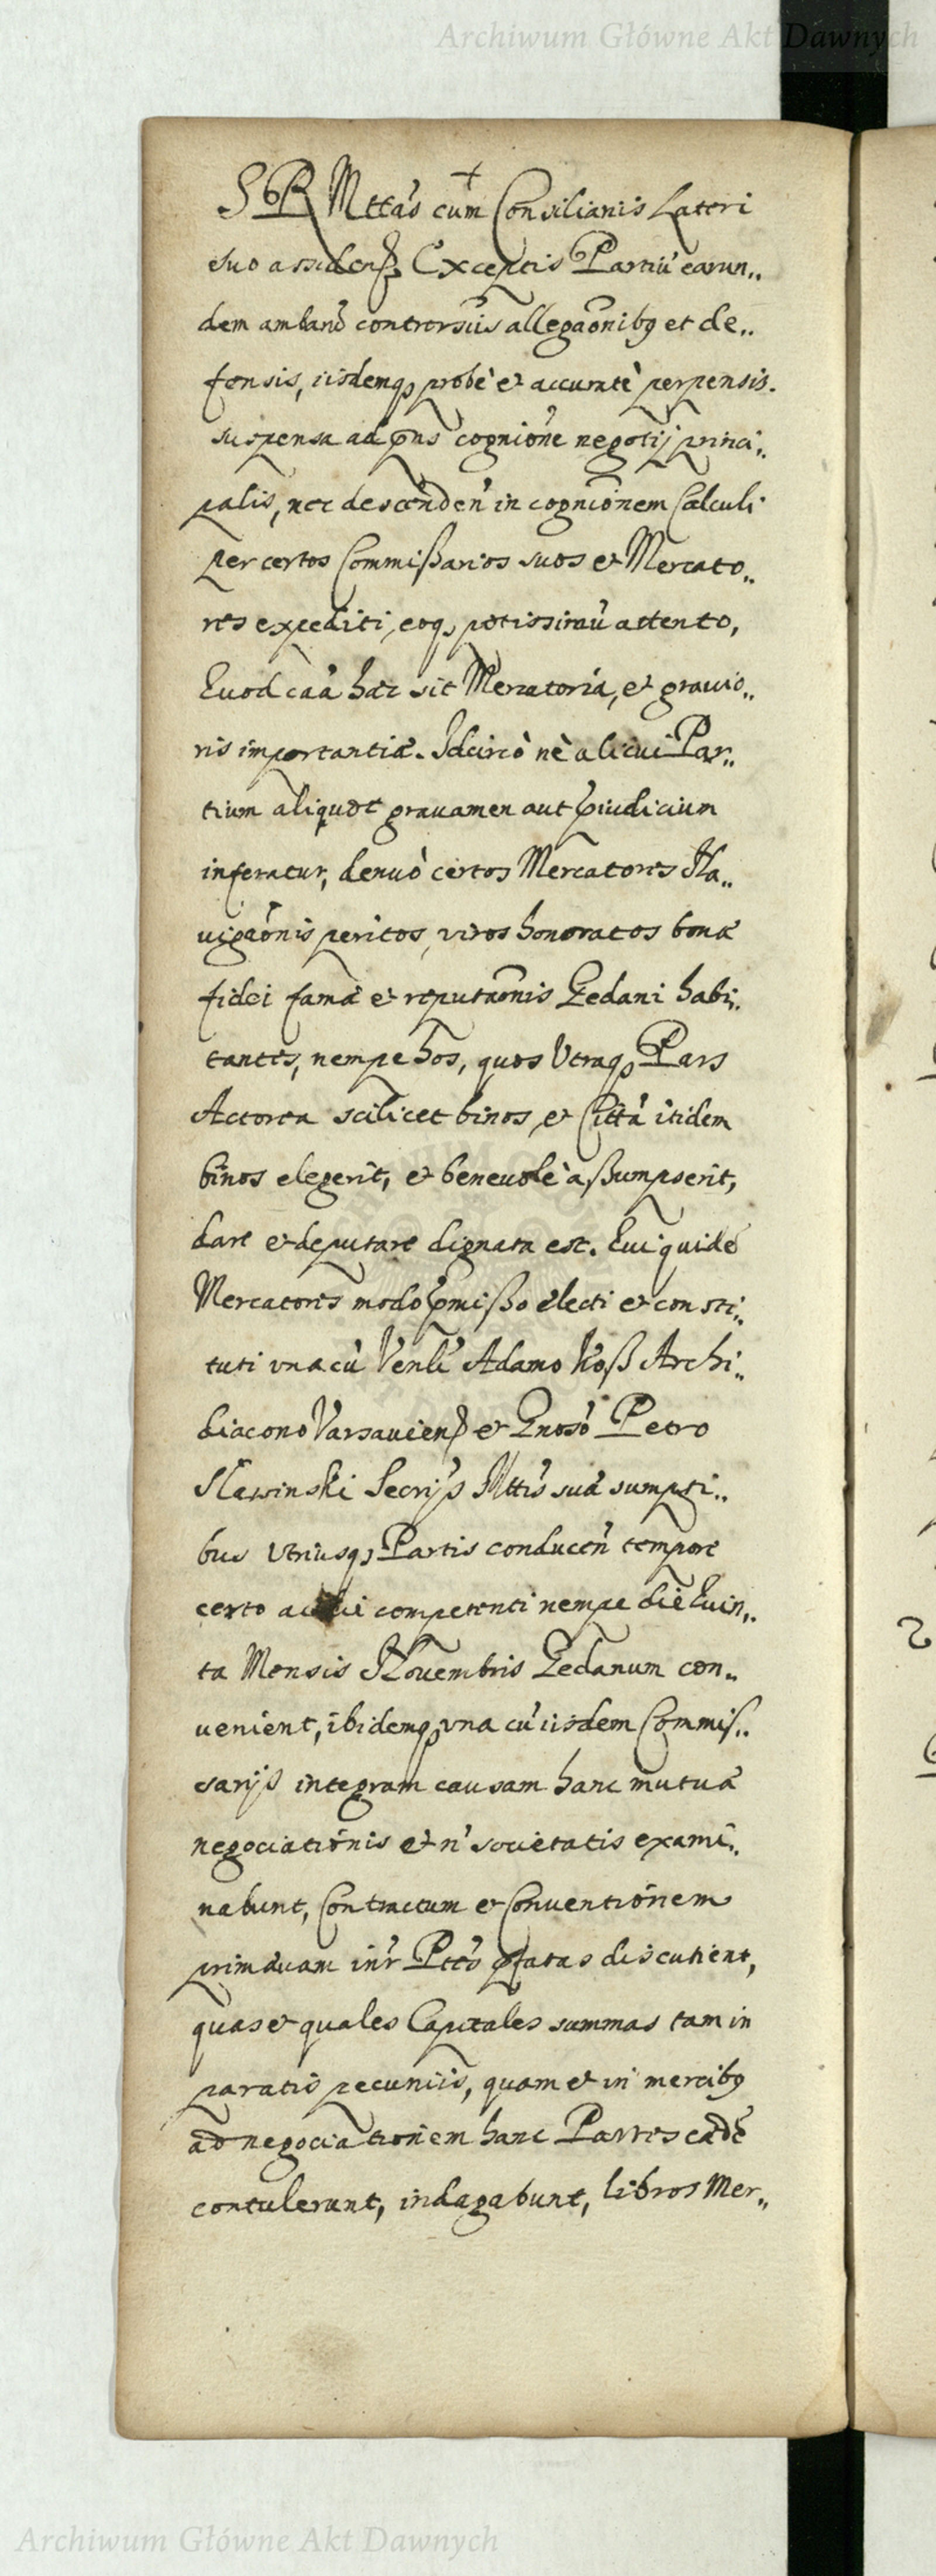 Archiwum Główne Akt Dawnych
S R Mttas cum Consiliariis Lateri
suo assidenß Exceptis Partiū earun„
dem ambarū controrsiis allegaōnibꝫ et de„
fensis, iisdemqꝫ probè et accuratè perpensis.
suspensa ad p̄ns cognione negotij princi„
palis, nec descendeñ in cognionem Calculi
per certos Commißarios suos et Mercato„
res expediti, eoqꝫ potissimū attento,
Quod caã haec sit Mercatoria, et grauio„
ris importantiæ. Idcircò nè alicui Par„
tium aliquot grauamen aut p̄iudicium
inferatur, denuò certos Mercatores Na„
uigaōnis peritos, viros honoratos bonæ
fidei famæ et reputaōnis Gedani habi„
tantes, nempe hos, quos Vtraqꝫ Pars
Actorea scilicet binos, et Citta itidem
binos elegerit, et beneuolè aßumpserit,
dare et deputare dignata est. Qui quidē
Mercatores modo p̄mißo electi et consti„
tuti vna cū Venli Adamo Koß Archi„
diacono Varsauienß et Gnoso Petro
Secrijs Mttis suæ sumpti„
bus Vtriusqꝫ Partis conduceñ tempore
certo competenti nempe die Quin„
ta Mensis Nouembris Gedanum con„
uenient, ibidemqꝫ vna cū iisdem Commis„
sarijs integram causam hanc mutuæ
negociationis et n' societatis exami„
nabunt, Contractum et Conuentionem
primæuam int'r Ptes p̄fatas discutient,
quas et quales Capitales summas tam in
paratis pecuniis, quam et in mercibꝫ
ad negociationem hanc Partes eædē
contulerunt, indagabunt, libros Mer„
Archiwum Główne Akt Dawnych